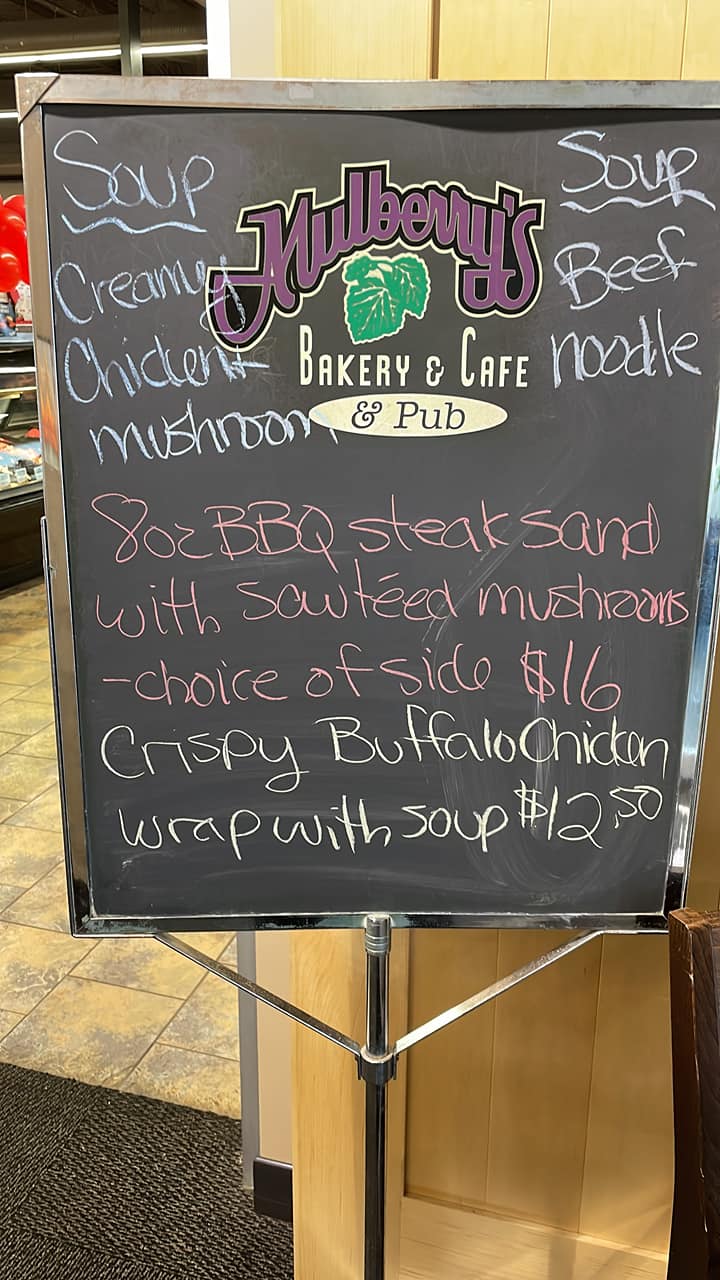 Soup
Creamy
Chicken +
mushroom
Mulberry's
BAKERY & CAFE
& Pub
Soup
Beef
noodle
8oz BBQ steak sand
with sawtéed mushrooms
-choice of side $16
Crispy Buffalo Chicken
wrap with soup $12.50